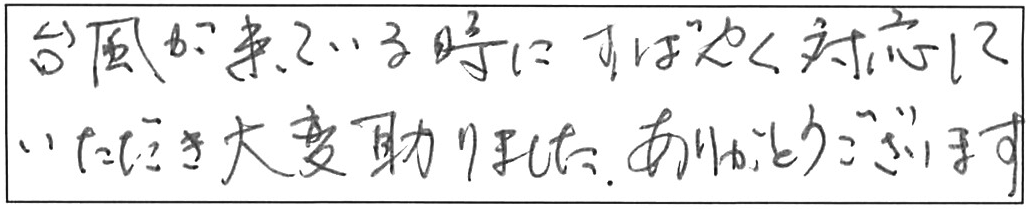 台風が来ている時にすばやく対応して
いただき大変助りました.ありがとうございます